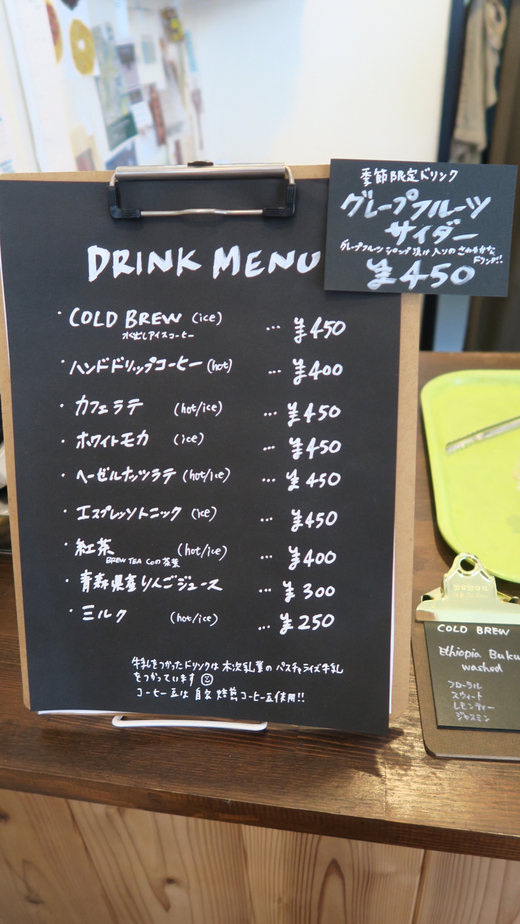 季節限定ドリンク
グレープフルーツ
サイダー
グレープフルーツシロップ漬け入りのさわやかな
ドリンク!!
¥450
DRINK MENU
・COLD BREW (ice) ... ¥450
水出しアイスコーヒー
・ハンドドリップコーヒー (hot) ... ¥400
・カフェラテ (hot/ice) ... ¥450
・ホワイトモカ (ice) ... ¥450
・ヘーゼルナッツラテ (hot/ice) ... ¥450
・エスプレッソトニック (ice) ... ¥450
・紅茶 (hot/ice) ... ¥400
BREW TEA Coの茶葉
・青森県産りんごジュース ... ¥300
・ミルク (hot/ice) ... ¥250
牛乳をつかったドリンクは木次乳業のパスチャライズ牛乳
をつかっています
コーヒー豆は自家焙煎コーヒー豆使用!!
COLD BREW
Ethiopia Buku
washed
フローラル
スウィート
レモンティー
ジャスミン